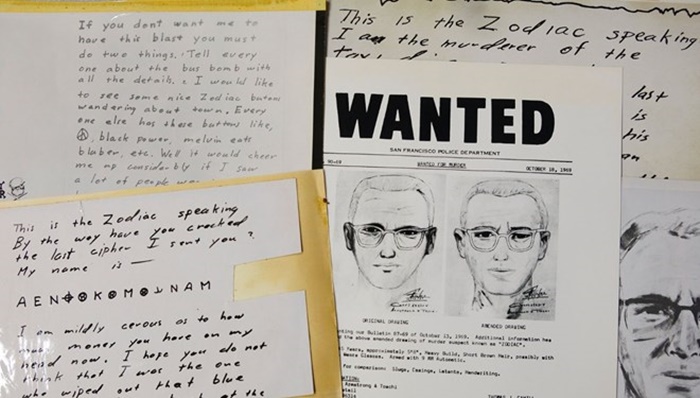 If you dont want me to
have this blast you must
do two things. Tell every
one about the bus bomb with
all the details. I would like
to see some nice Zodiac butons
wandering about town. Every
one else has these buttons like,
☮, black power, melvin eats
bluber, etc. Well it would cheer
me up considerbly if I saw
a lot of people
This is the Zodiac speaking
I am the murderer of the
last
is
his
an
This is the Zodiac speaking
By the way have you cracked
the last cipher I sent you?
My name is —
A E N ⌖ ⊛ K ⊛ M ⊛ ⅃ N A M
I am mildly cerous as to how
much money you have on my
head now. I hope you do not
think that I was the one
who wiped out that blue
at the
WANTED
SAN FRANCISCO POLICE DEPARTMENT
90-69 WANTED FOR MURDER OCTOBER 18, 1969
ORIGINAL DRAWING AMENDED DRAWING
our Bulletin 87-69 of October 13, 1969. Additional information has
the above amended drawing of murder suspect known as "ZODIAC".
Years, approximately 5'8", Heavy Build, Short Brown Hair, possibly with
Glasses. Armed with 9 MM Automatic.
for comparison: Slugs, Casings, Latents, Handwriting.
Armstrong & Toschi
THOMAS J. CAHILL